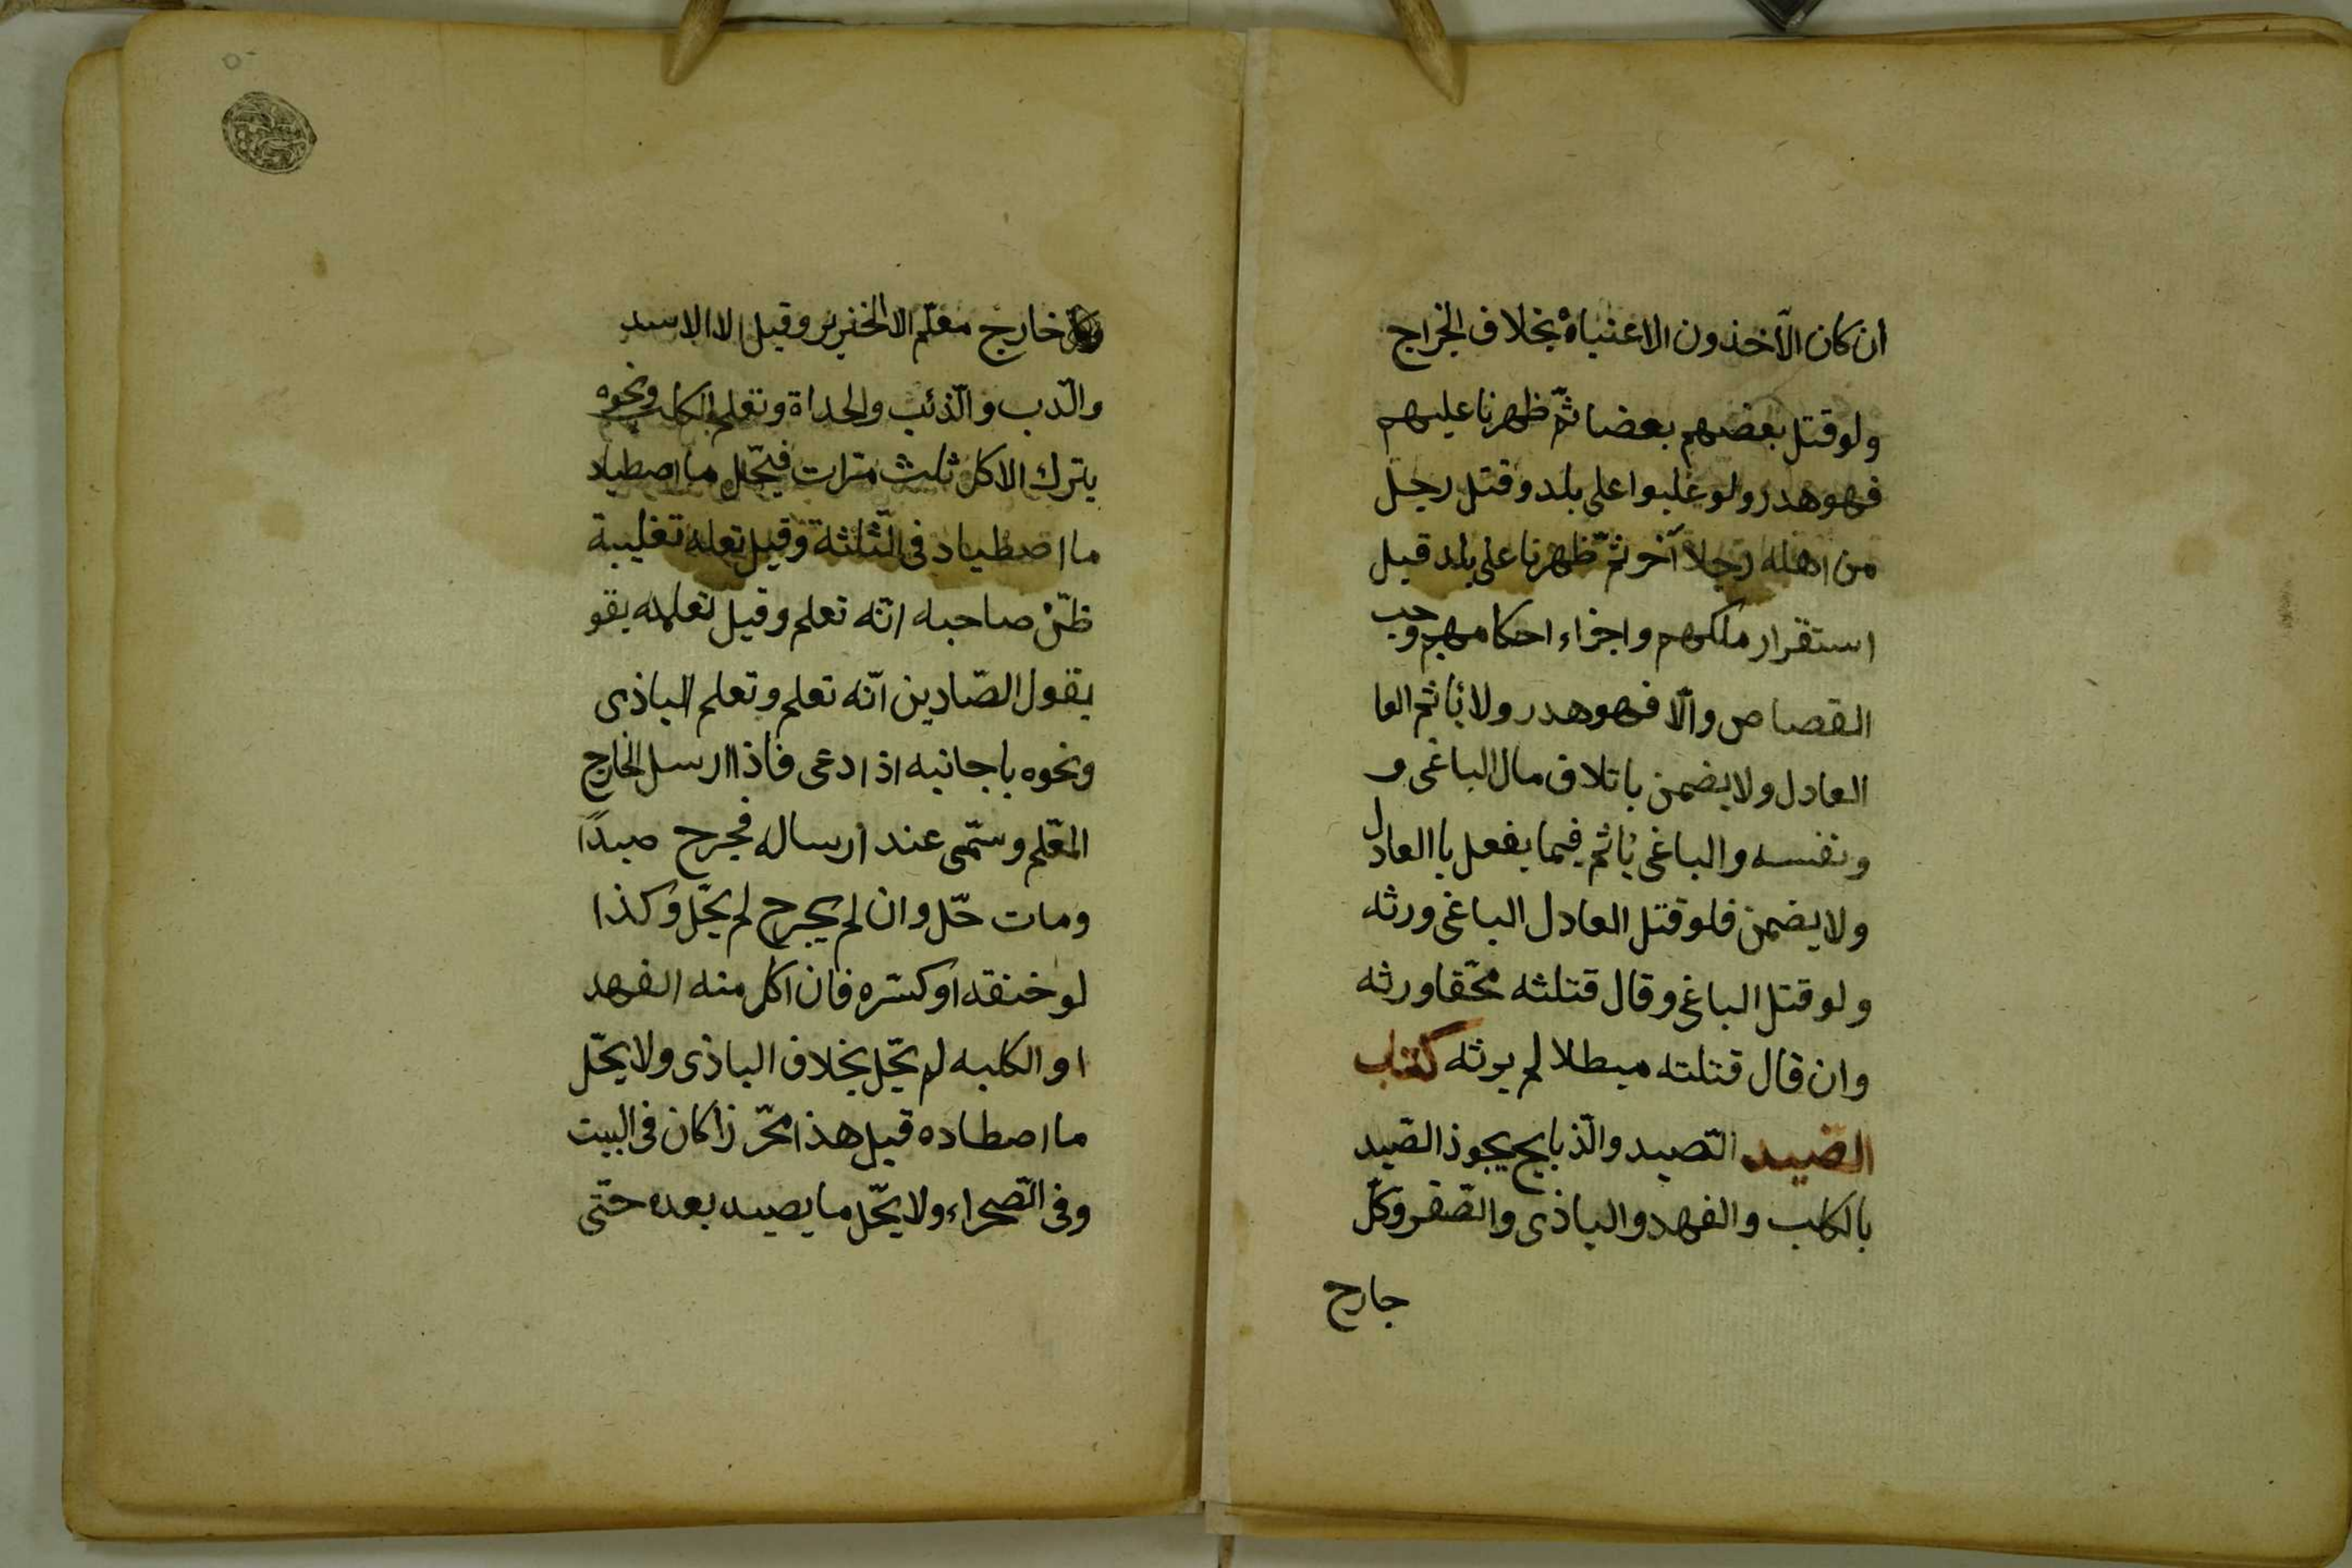 ان كان الآخذون الاعنياهْ بخلاف الخراج
ولو قتل بعضهم بعضا ثمّ ظهرنا عليهم
فهو هدر ولو غلبوا على بلد وقتل رجل
من اهله رجلا آخر ثمّ ظهرنا على بلد قيل
استقرار ملكهم واجراء احكامهم وجب
القصاص والّا فهو هدر ولا يأثم العا
العادل ولا يضمن باتلاف مال الباغى و
ونفسه والباغى يأثم فيما يفعل باالعادل
ولا يضمن فلو قتل العادل الباغى ورثه
ولو قتل الباغى وقال قتلثه محّقا ورثه
وان قال قتلته مبطلا لم يرثه كتاب
الصيد التّصيد والذّبايح يجوذ الصّيد
بالكلب والفهد والباذى والصّقر وكلّ
جارح
خارج معلّم الا الخنرير وقيل الا الاسد
والدّب والذّئب والحداة وتعلم الكلب ونحوه
بترك الاكل ثلث مرّات فيحّل ما اصطياد
ما اصطياد فى الثّلثة وقيل تعله تغليبة
ظنّ صاحبه انّه تعلم وقيل تعلمه بقو
بقول الصّادين انّه تعلم وتعلم الباذى
ونحوه باجانبه اذا دعى فاذا ارسل الخارج
المعّلم وسمّى عند ارساله فجرح صيدًا
ومات حّل وان لم يجرح لم يحّل وكذا
لو خنقه او كسّره فان اكل منه الفهد
او الكلبه لم يحّل بخلاف الباذى ولا يحّل
ما اصطاده قبل هذا محّرزا كان فى البيت
وفى الصّحراء ولا يحّل ما يصيد بعده حتّى